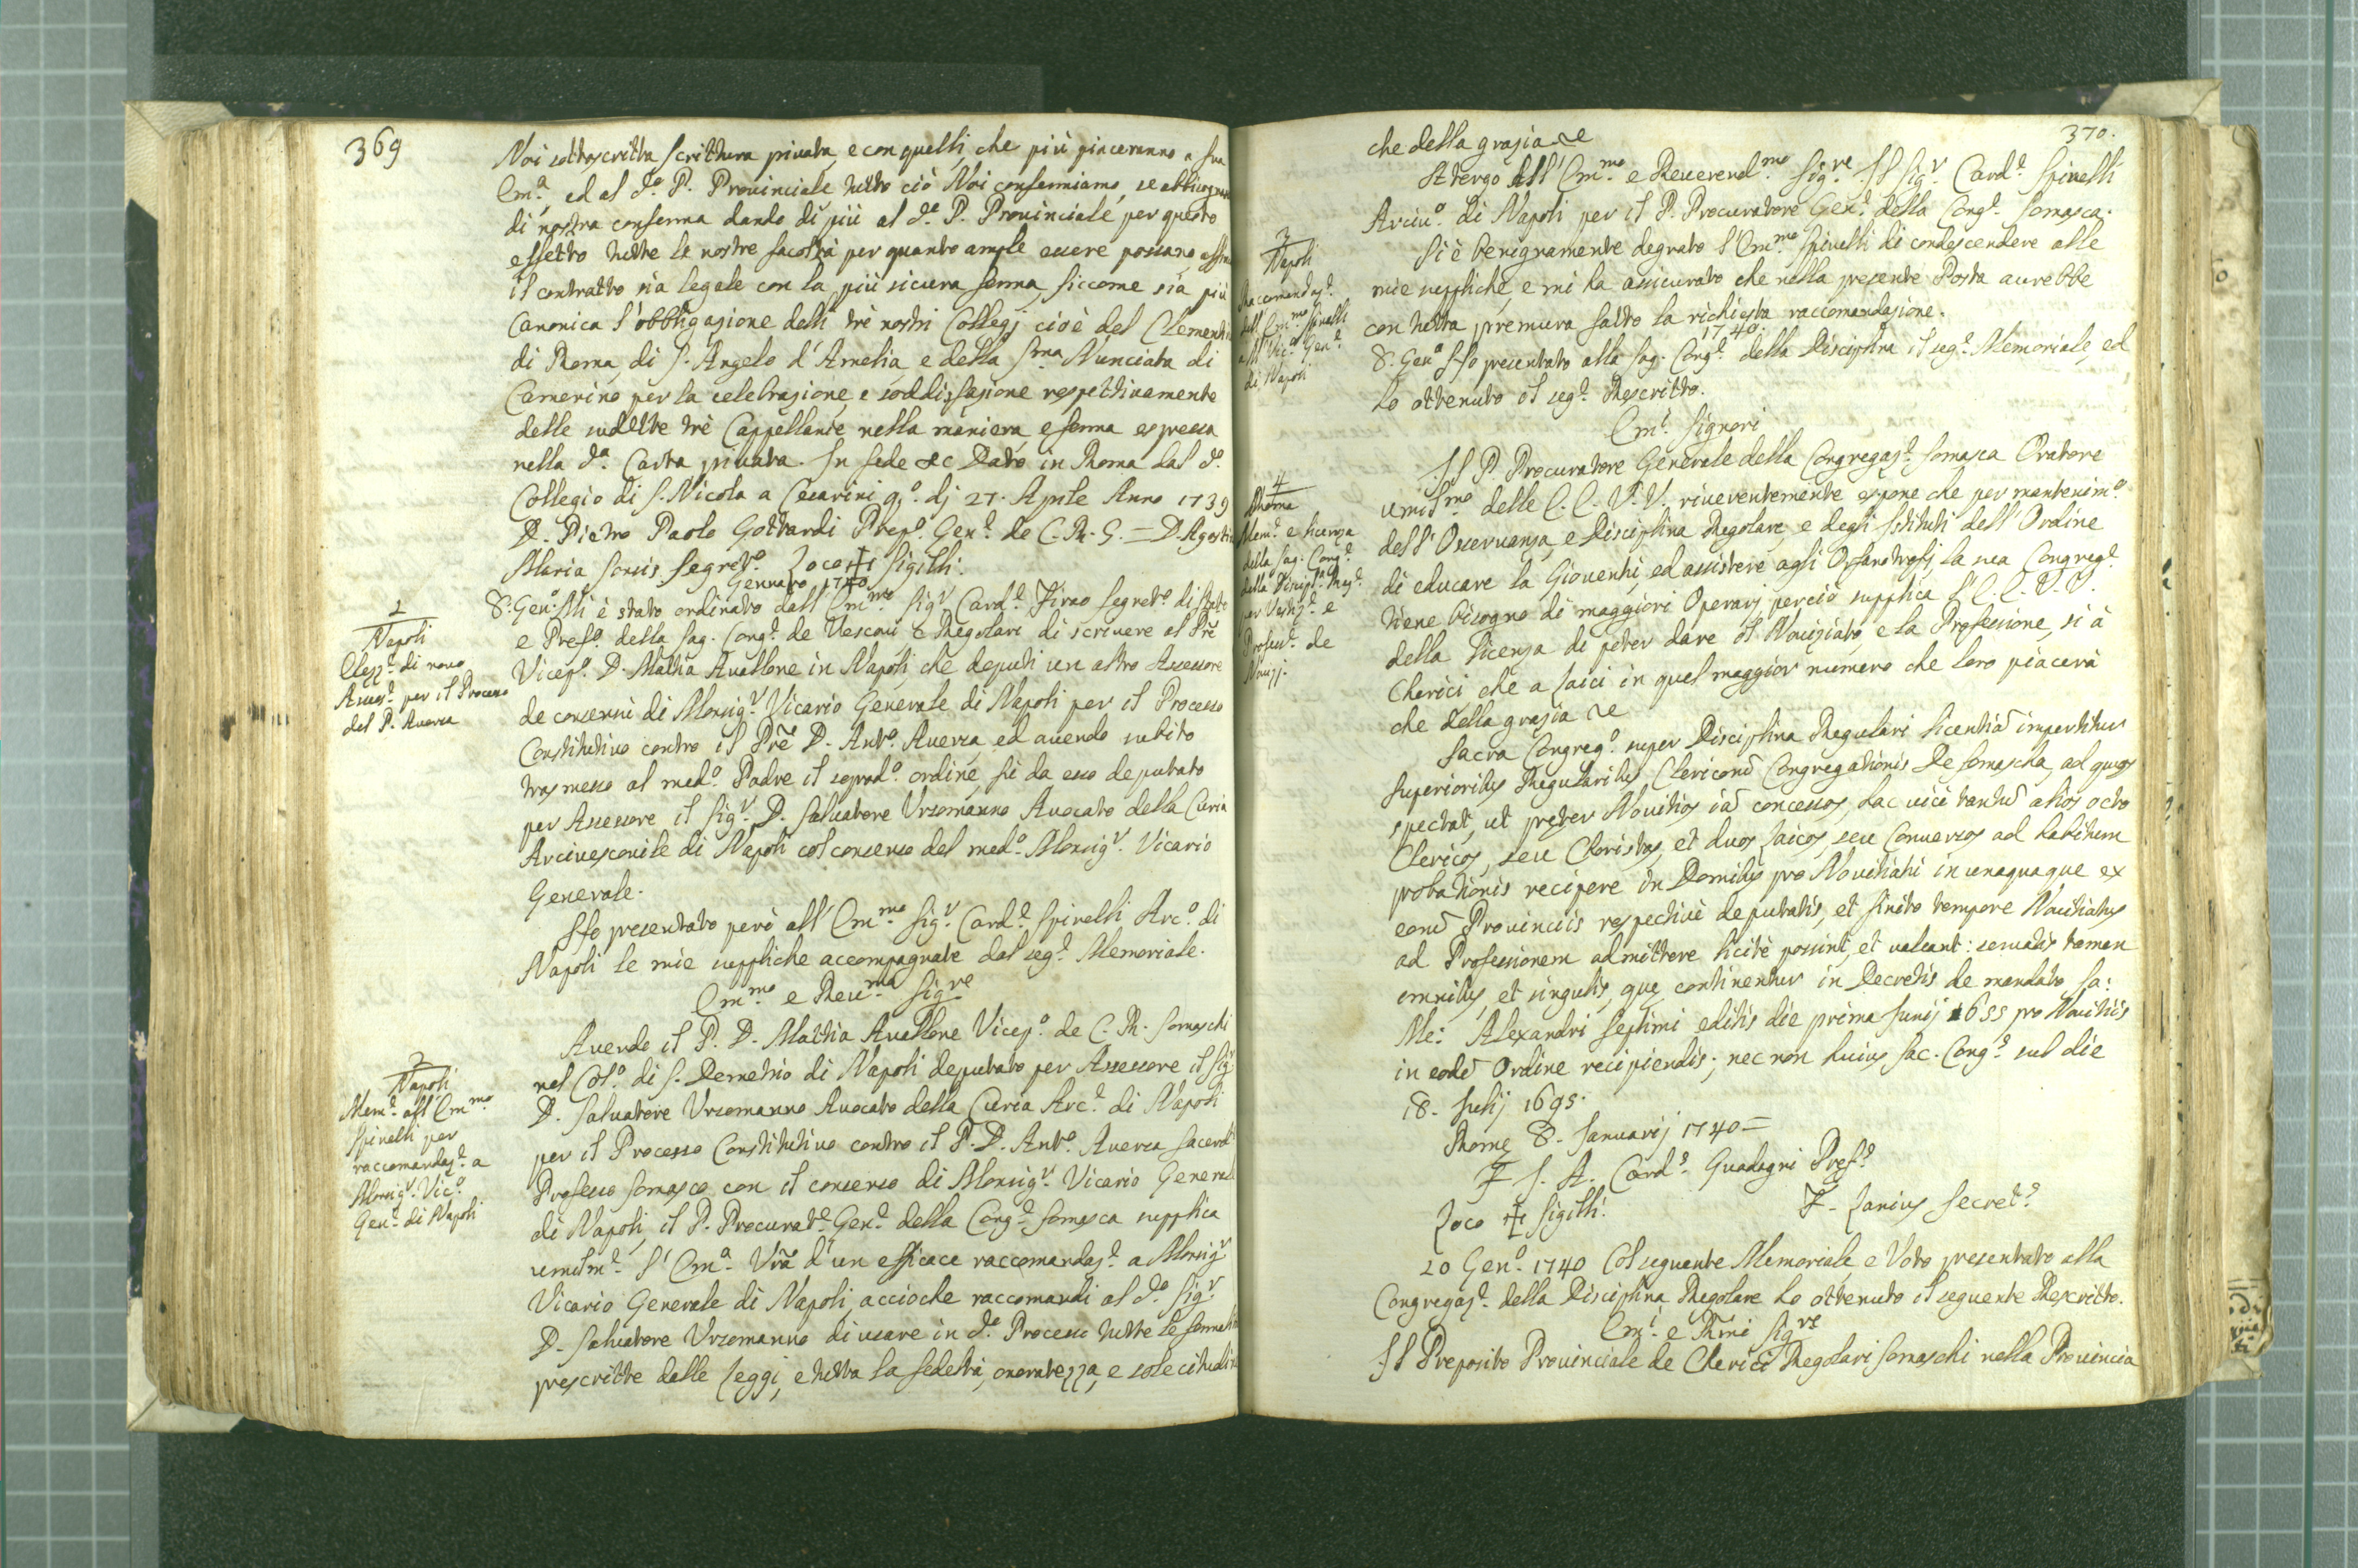 369
Noi sottoscritta scrittura privata, e con quelli, che più piaceranno a sua
Em.ª, ed al d.º P. Provinciale tutto ciò Noi confermiamo, se abbisognano
di nostra conferma dando di più al d.º P. Provinciale per questo
effetto tutte le nostre facoltà per quanto ample essere possano
il contratto sia legale con la più sicura forma, siccome sia più
Canonica l'obbligazione delli trè nostri Collegj cioè del Clementino
di Roma, di S. Angelo d'Amelia, e della SS.ma Nunciata di
Camerino per la celebrazione, e soddisfazione respettivamente
delle sudette trè Cappellanie nella maniera, e forma espressa
nella d.ª Carta privata. In fede &c Dato in Roma dal d.º
Collegio di S. Nicola a Cesarini q.º dj 27. Aprile Anno 1739
D. Pietro Paolo Gottardi Prep.º Gen.e de C. R. S. = D. Agostin
Maria Segret.º Loco + Sigilli.
Gennaro 1740
1
Napoli
Elez.e di novo
Asses.e per il Processo
del P. Aversa
8. Gen.º Mi è stato ordinato dall' Em.mo Sig.r Card.e Firao Segret.º di Stato
e Pref.º della Sag. Cong.e de Vescovi e Regolari di scrivere al Prē
Vicep.º D. Mattia Avallone in Napoli che deputi un altro Assessore
de consensu di Monsig.r Vicario Generale di Napoli per il Processo
Constitutivo contro il Prē D. Ant.º Aversa ed avendo subito
trasmesso al med.º Padre il soprad.º ordine, fù da esso deputato
per Assessore il Sig.r D. Salvatore Ursomanno Avocato della Curia
Arcivescovile di Napoli col consenso del med.º Monsig.r Vicario
Generale.
Hò presentato però all' Em.mo Sig.r Card.e Spinelli Arc.º di
Napoli le mie suppliche accompagnate dal seg.e Memoriale.
Em.mo e Rev.mo Sig.re
2
Napoli
Mem.e all' Em.mo
Spinelli per
raccomandaz.e a
Monsig.r Vic.º
Gen.e di Napoli
Avendo il P. D. Mattia Avallone Vicep.º de C. R. Somaschi
nel Col.º di S. Demetrio di Napoli deputato per Assessore il Sig.r
D. Salvatore Ursomanno Avocato della Curia Arc.e di Napoli
per il Processo Constitutivo contro il P. D. Ant.º Aversa Sacerd.e
Professo Somasco con il consenso di Monsig.r Vicario General
di Napoli, il P. Procurat.e Gen.e della Cong.e Somasca supplica
umilm.e l' Em.ª Vrā d'un efficace raccomandaz.e a Monsig.r
Vicario Generale di Napoli, acciochè raccomandi al d.º Sig.r
D. Salvatore Ursomanno di usare in d.º Processo tutte le formalità
prescritte dalle Leggi, e tutta la fedeltà, onoratezza, e solecitudine
370.
che della grazia &c
A tergo All' Em.mo e Reverend.mo Sig.re Il Sig.r Card.e Spinelli
Arciv.º di Napoli per il P. Procuratore Gen.e della Cong.e Somasca.
3
Napoli
Raccomandaz.e
dell' Em.mo Spinelli
all Vic.º Gen.e
di Napoli
Si è benignamente degnato l' Em.mo Spinelli di condescendere alle
mie suppliche, e mi ha assicurato che nella presente Posta avrebbe
con tutta premura fatto la richiesta raccomandazione.
1740.
8. Gen.º Hò presentato alla Sag. Cong.e della Disciplina il seg.e Memoriale, ed
ho ottenuto il seg.e Rescritto.
Em.i Signori
4
Roma
Mem.e e licenza
della Sag. Cong.e
della Discipl.ª Reg.e
per Vestiz.e e
Profess.e de
Novizj.
Il P. Procuratore Generale della Congregaz.e Somasca Oratore
umil.mo delle E. E. V. V. riverentemente espone che per mantenim.º
dell' Osservanza, e Disciplina Regolare, e degli Istituti dell' Ordine
di educare la Gioventù, ed assistere agli Orfanotrofij la sua Congreg.e
tiene bisogno di maggiori Operarj, perciò supplica l' E. E. V. V.
della licenza di poter dare il Noviziato, e la Professione, sì à
Cherici che a Laici in quel maggior numero che loro piacerà
che della grazia &c
Sacra Congreg.º super Disciplina Regulari licentiā impertitur
Superioribus Regularibus Clericorū Congregationis De Somascha, ad quos
spectat, ut preter Novitios iā concessos, hac vice tantū alios octo
Clericos, seu Choristas, et duos Laicos, seu Conversos ad habitum
probationis recipere in Domibus pro Novitiatu in unaquaque ex
eorū Provinciis respective deputatis, et finito tempore Novitiatus
ad Professionem admittere licitè possint, et valeant: servatis tamen
omnibus, et singulis, quę continentur in Decretis de mandato sa:
Me: Alexandri Septimi editis die prima Junij 1655 pro Novitiis
in eodē Ordine recipiendis, nec non huius Sac. Cong.e sub die
18. Julij 1695.
Romę 8. Januarij 1740 =
F. J. A. Card.s Guadagni Pref.s
Loco + Sigilli.
F. Larius Secret.s
20 Gen.º 1740 Col seguente Memoriale, e Voto presentato alla
Congregaz.e della Disciplina Regolare ho ottenuto il seguente Rescritto.
Em.i e Rmī Sig.re
Il Preposito Provinciale de Clerici Regolari Somaschi nella Provincia